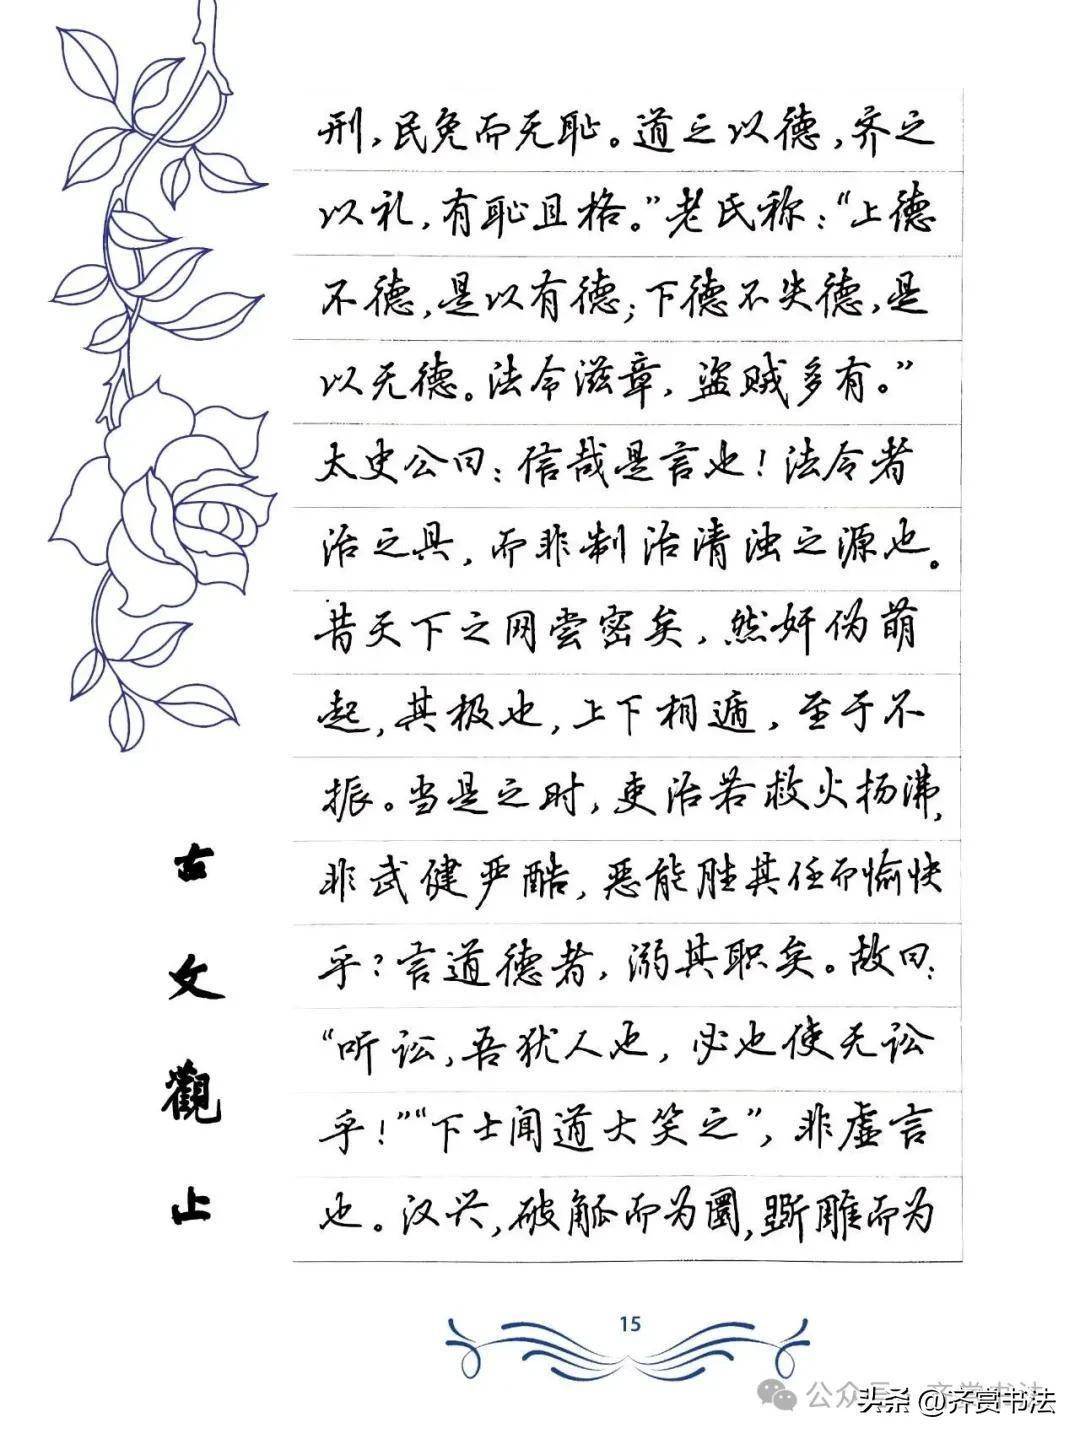 刑，民免而无耻。道之以德，齐之
以礼，有耻且格。”老氏称：“上德
不德，是以有德；下德不失德，是
以无德。法令滋章，盗贼多有。”
太史公曰：信哉是言也！法令者
治之具，而非制治清浊之源也。
昔天下之网尝密矣，然奸伪萌
起，其极也，上下相遁，至于不
振。当是之时，吏治若救火扬沸，
非武健严酷，恶能胜其任而愉快
乎？言道德者，溺其职矣。故曰：
“听讼，吾犹人也，必也使无讼
乎！”“下士闻道大笑之”，非虚言
也。汉兴，破觚而为圜，斲雕而为
古文觀止
15
公众号
头条 @齐赏书法